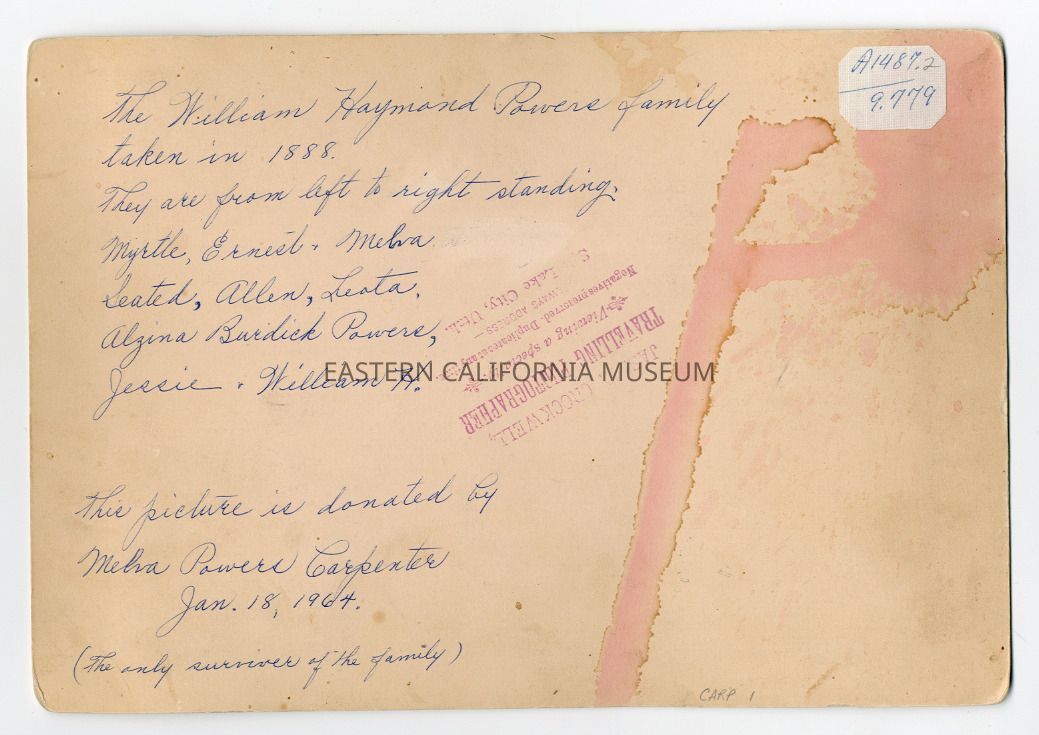 The William Haymond Powers family
taken in 1888.
They are from left to right standing,
Myrtle, Ernest & Melva
Seated, Allen, Leota,
Alzina Burdick Powers,
Jessie & William H.
This picture is donated by
Melva Powers Carpenter
Jan. 18, 1964.
(The only surviver of the family)
A1487.2
9.779
CROCKWELL,
TRAVELLING PHOTOGRAPHER
Viewing a special
Negatives preserved. Duplicates
ADDRESS
Lake City, Utah.
EASTERN CALIFORNIA MUSEUM
CARP 1